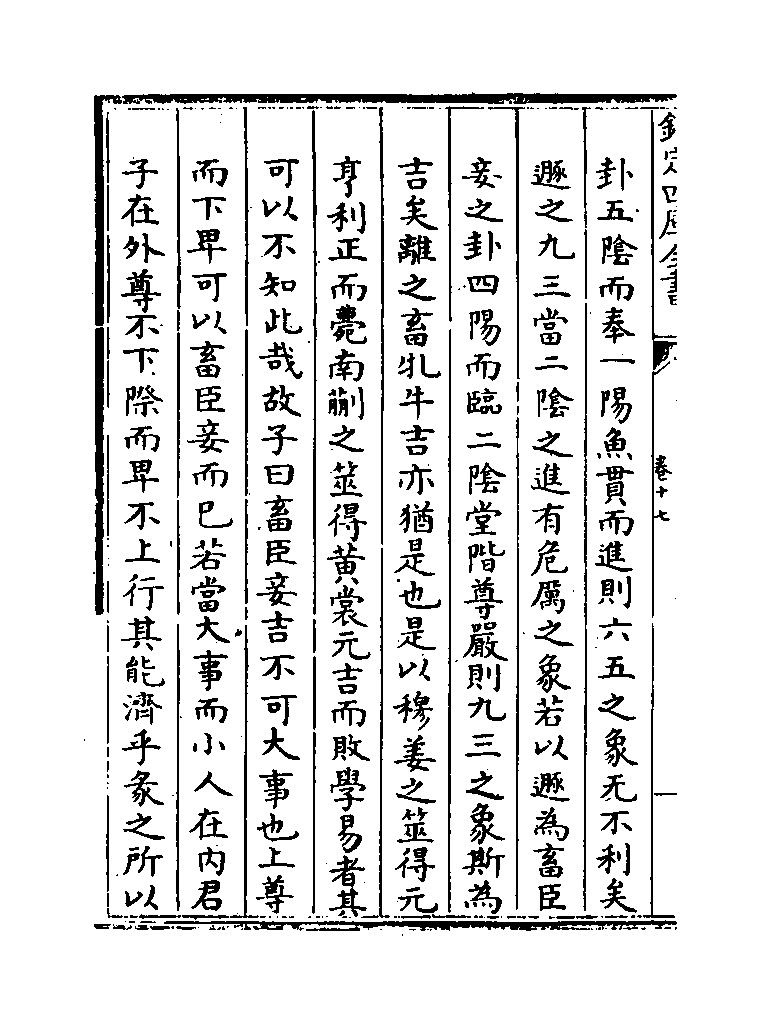 欽定四庫全書
卷十七
卦五陰而奉一陽魚貫而進則六五之象无不利矣
遯之九三當二陰之進有危厲之象若以遯為畜臣
妾之卦四陽而臨二陰堂階尊嚴則九三之象斯為
吉矣離之畜牝牛吉亦猶是也是以穆姜之筮得元
亨利正而薨南蒯之筮得黄裳元吉而敗學易者其
可以不知此哉故子曰畜臣妾吉不可大事也上尊
而下畀可以畜臣妾而巳若當大事而小人在内君
子在外尊不下際而畀不上行其能濟乎彖之所以